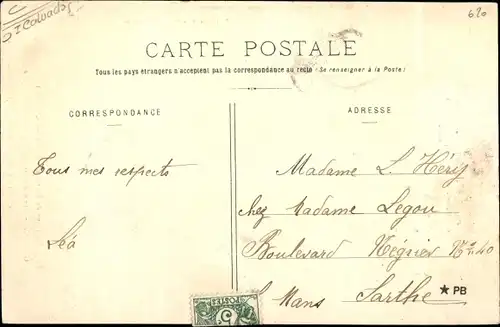 Calvados
620
CARTE POSTALE
Tous les pays étrangers n'acceptent pas la correspondance au recto (Se renseigner à la Poste)
CORRESPONDANCE
ADRESSE
Tous mes respects
Léa
Madame L. Héry
chez Madame Legou
Boulevard Négrier No 40
Le Mans Sarthe
★ PB
POSTES
5